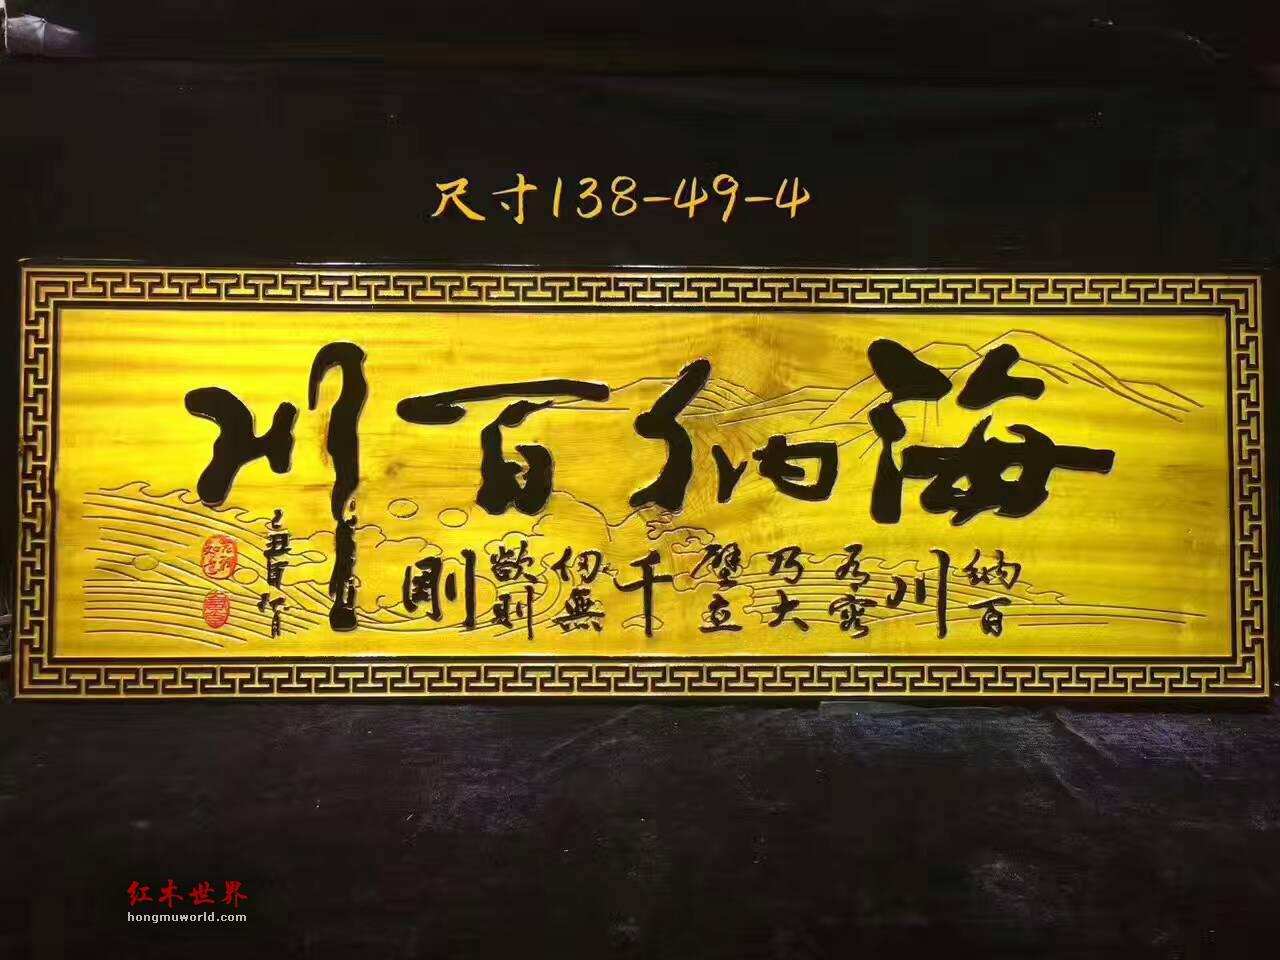 尺寸138-49-4
海纳百川
納百
川
有容
乃大
壁立
千
仞無
欲則
剛
红木世界
hongmuworld.com